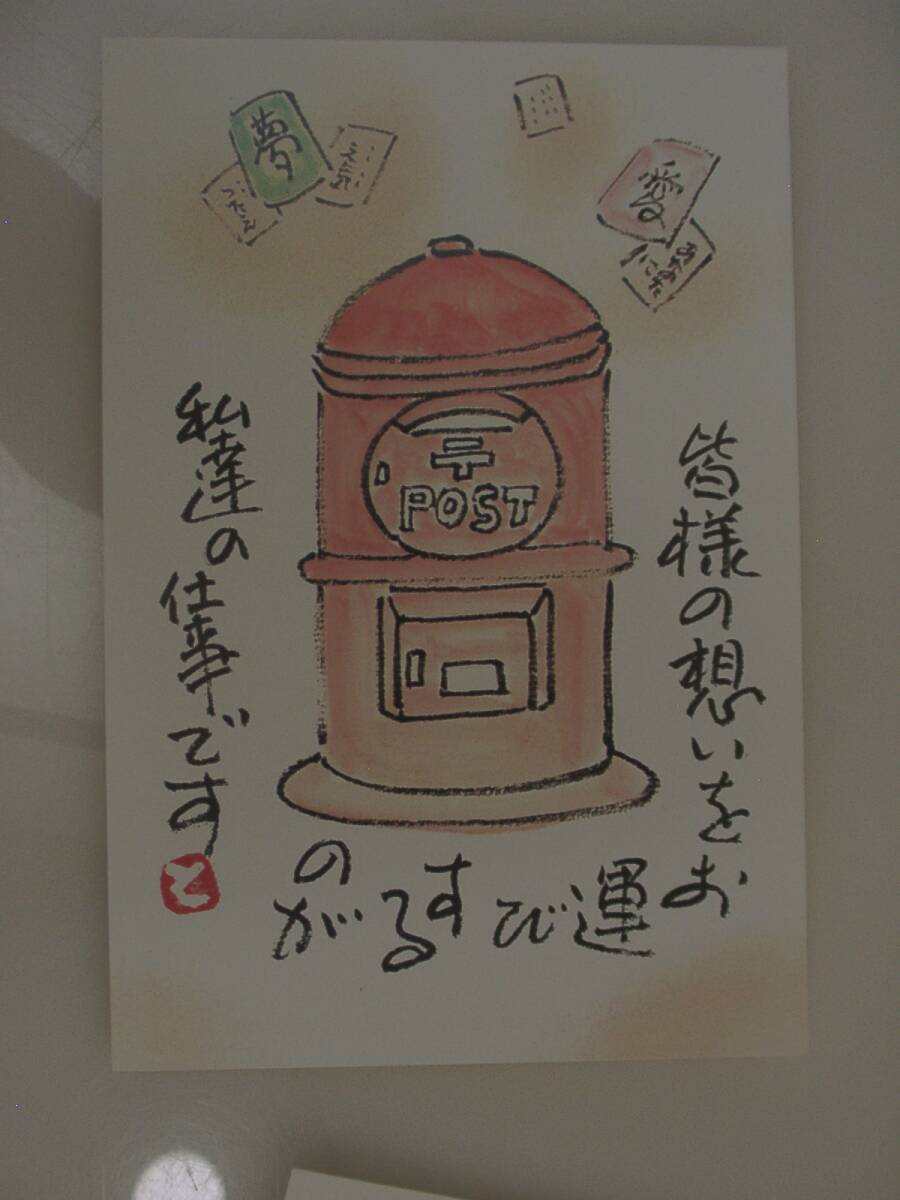 皆様の想いをお
運びするのが
私達の仕事です
と
〒
POST
夢
愛